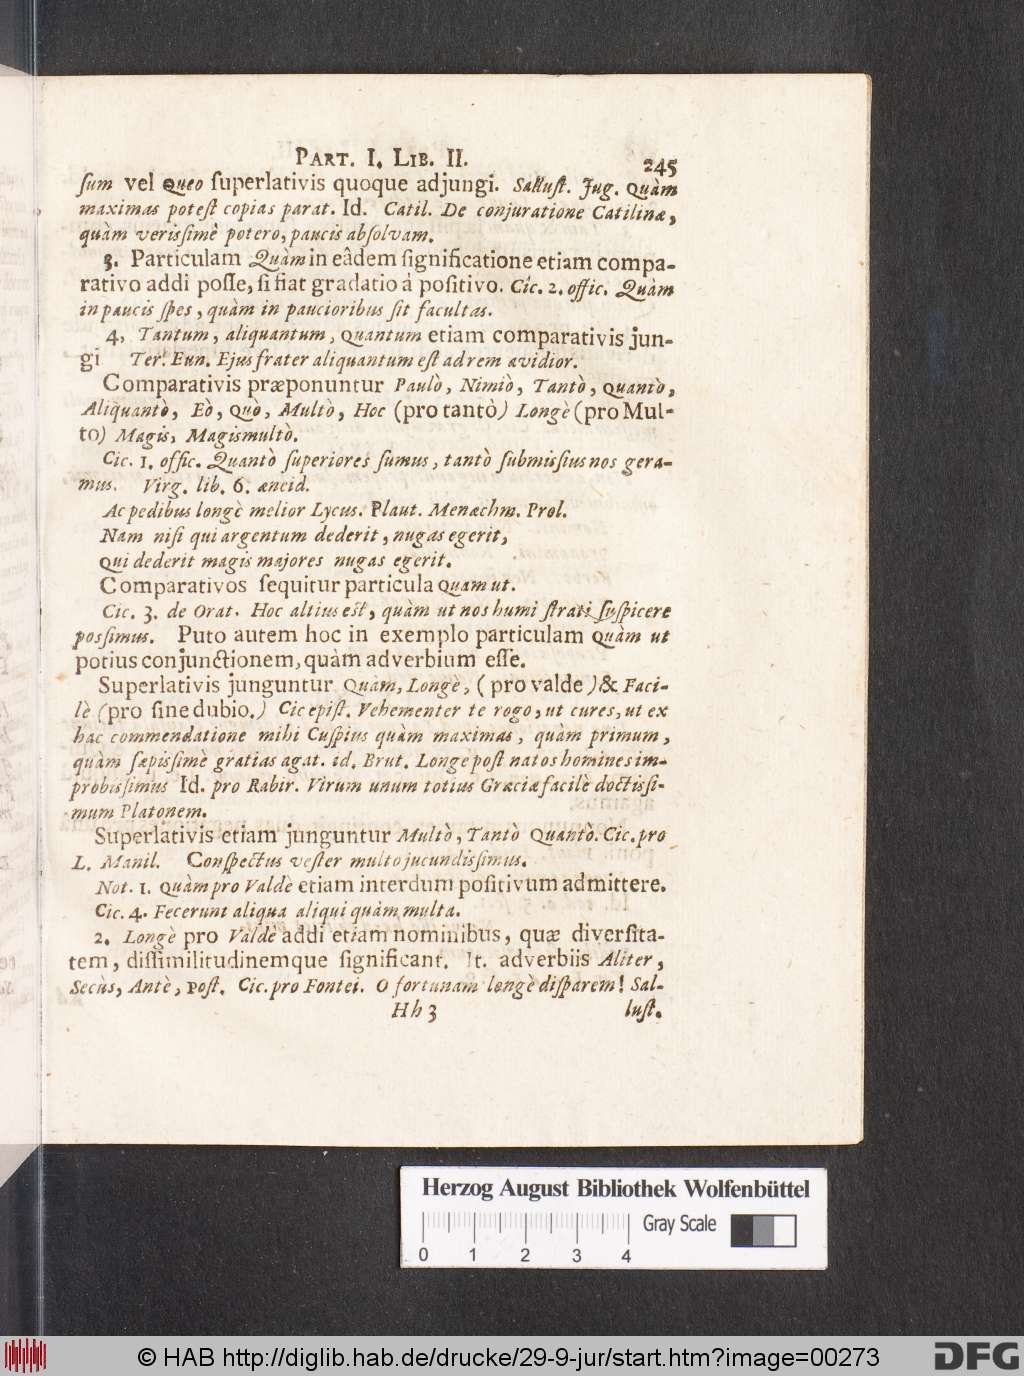 PART. I. LIB. II. 245
ſum vel Queo ſuperlativis quoque adjungi. Salluſt. Jug. Quàm
maximas poteſt copias parat. Id. Catil. De conjuratione Catilinæ,
quàm verisſimè potero, paucis abſolvam.
3. Particulam Quàm in eâdem ſignificatione etiam compa-
rativo addi poſſe, ſi fiat gradatio á poſitivo. Cic. 2. offic. Quàm
in paucis ſpes, quàm in paucioribus ſit facultas.
4, Tantum, aliquantum, Quantum etiam comparativis jun-
gi Ter. Eun. Ejus frater aliquantum eſt ad rem avidior.
Comparativis præponuntur Paulò, Nimiò, Tantò, Quantò,
Aliquantò, Eò, Quò, Multò, Hoc (pro tantò) Longè (pro Mul-
to) Magis, Magismultò.
Cic. 1. offic. Quantò ſuperiores ſumus, tantò ſubmisſius nos gera-
mus. Virg. lib. 6. æneid.
Ac pedibus longè melior Lycus. Plaut. Menæchm. Prol.
Nam niſi qui argentum dederit, nugas egerit,
Qui dederit magis majores nugas egerit.
Comparativos ſequitur particula Quam ut.
Cic. 3. de Orat. Hoc altius eſt, quàm ut nos humi ſtrati ſuſpicere
posſimus. Puto autem hoc in exemplo particulam Quàm ut
potius conjunctionem, quàm adverbium eſſe.
Superlativis junguntur Quàm, Longè, (pro valde) & Faci-
lè (pro ſine dubio.) Cic epiſt. Vehementer te rogo, ut cures, ut ex
hac commendatione mihi Cuſpius quàm maximas, quàm primum,
quàm ſæpisſimè gratias agat. id. Brut. Longe poſt natos homines im-
probisſimus Id. pro Rabir. Virum unum totius Græciæ facilè doctisſi-
mum Platonem.
Superlativis etiam junguntur Multò, Tantò Quantò. Cic. pro
L. Manil. Conſpectus veſter multo jucundisſimus.
Not. 1. Quàm pro Valdè etiam interdum poſitivum admittere.
Cic. 4. Fecerunt aliqua aliqui quàm multa.
2. Longè pro Valdè addi etiam nominibus, quæ diverſita-
tem, diſſimilitudinemque ſignificant. It. adverbiis Aliter,
Secùs, Antè, Poſt. Cic. pro Fontei. O fortunam longè diſparem! Sal-
Hh 3 luſt.
Herzog August Bibliothek Wolfenbüttel
Gray Scale
0 1 2 3 4
© HAB http://diglib.hab.de/drucke/29-9-jur/start.htm?image=00273
DFG